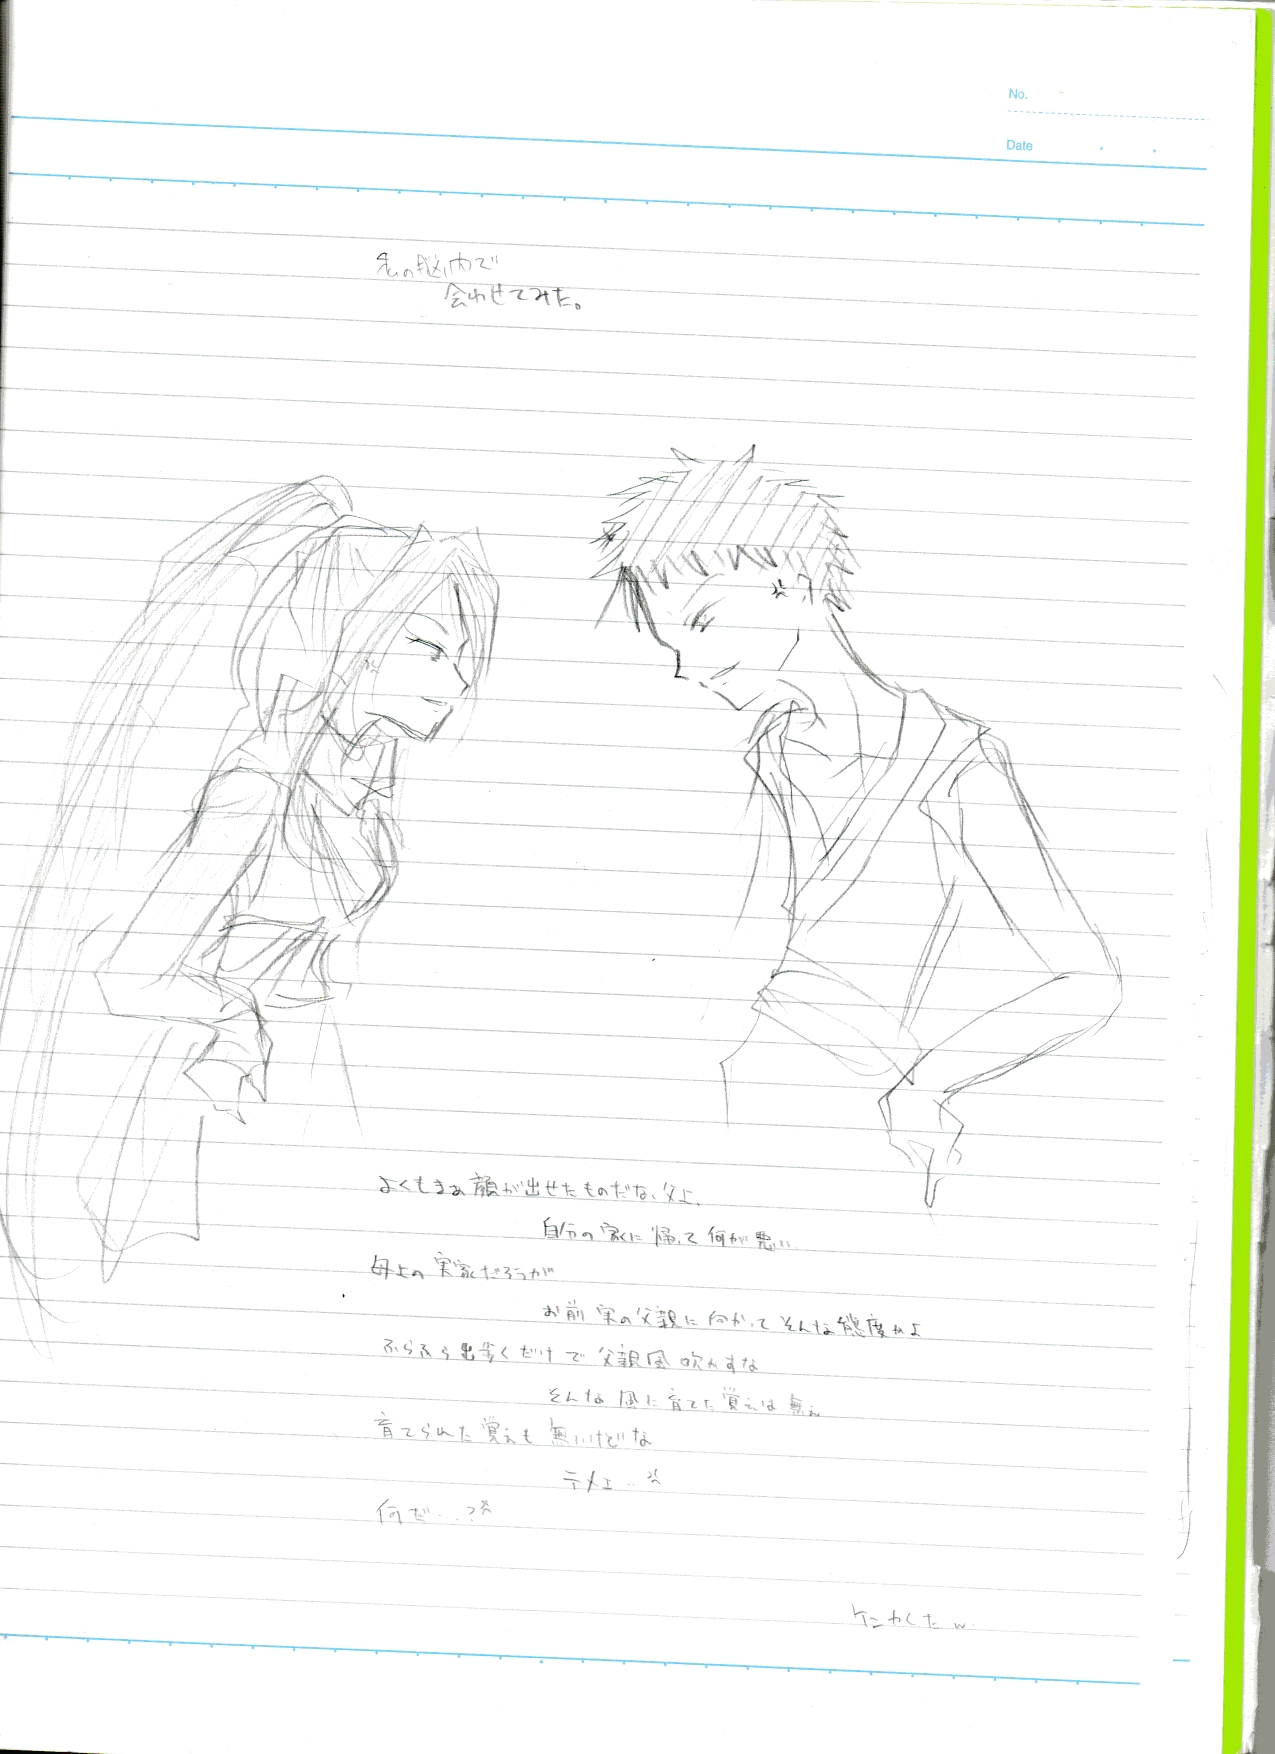 No.
Date
私の脳内で
会わせてみた。
よくもまぁ顔が出せたものだな、父上、
自分の家に帰って何が悪い
母上の実家だろうが
お前実の父親に向かってそんな態度かよ
ふらふら出歩くだけで父親風吹かすな
そんな風に育てた覚えは無ぇ
育てられた覚えも無いけどな
テメェ…
何だ…?
w